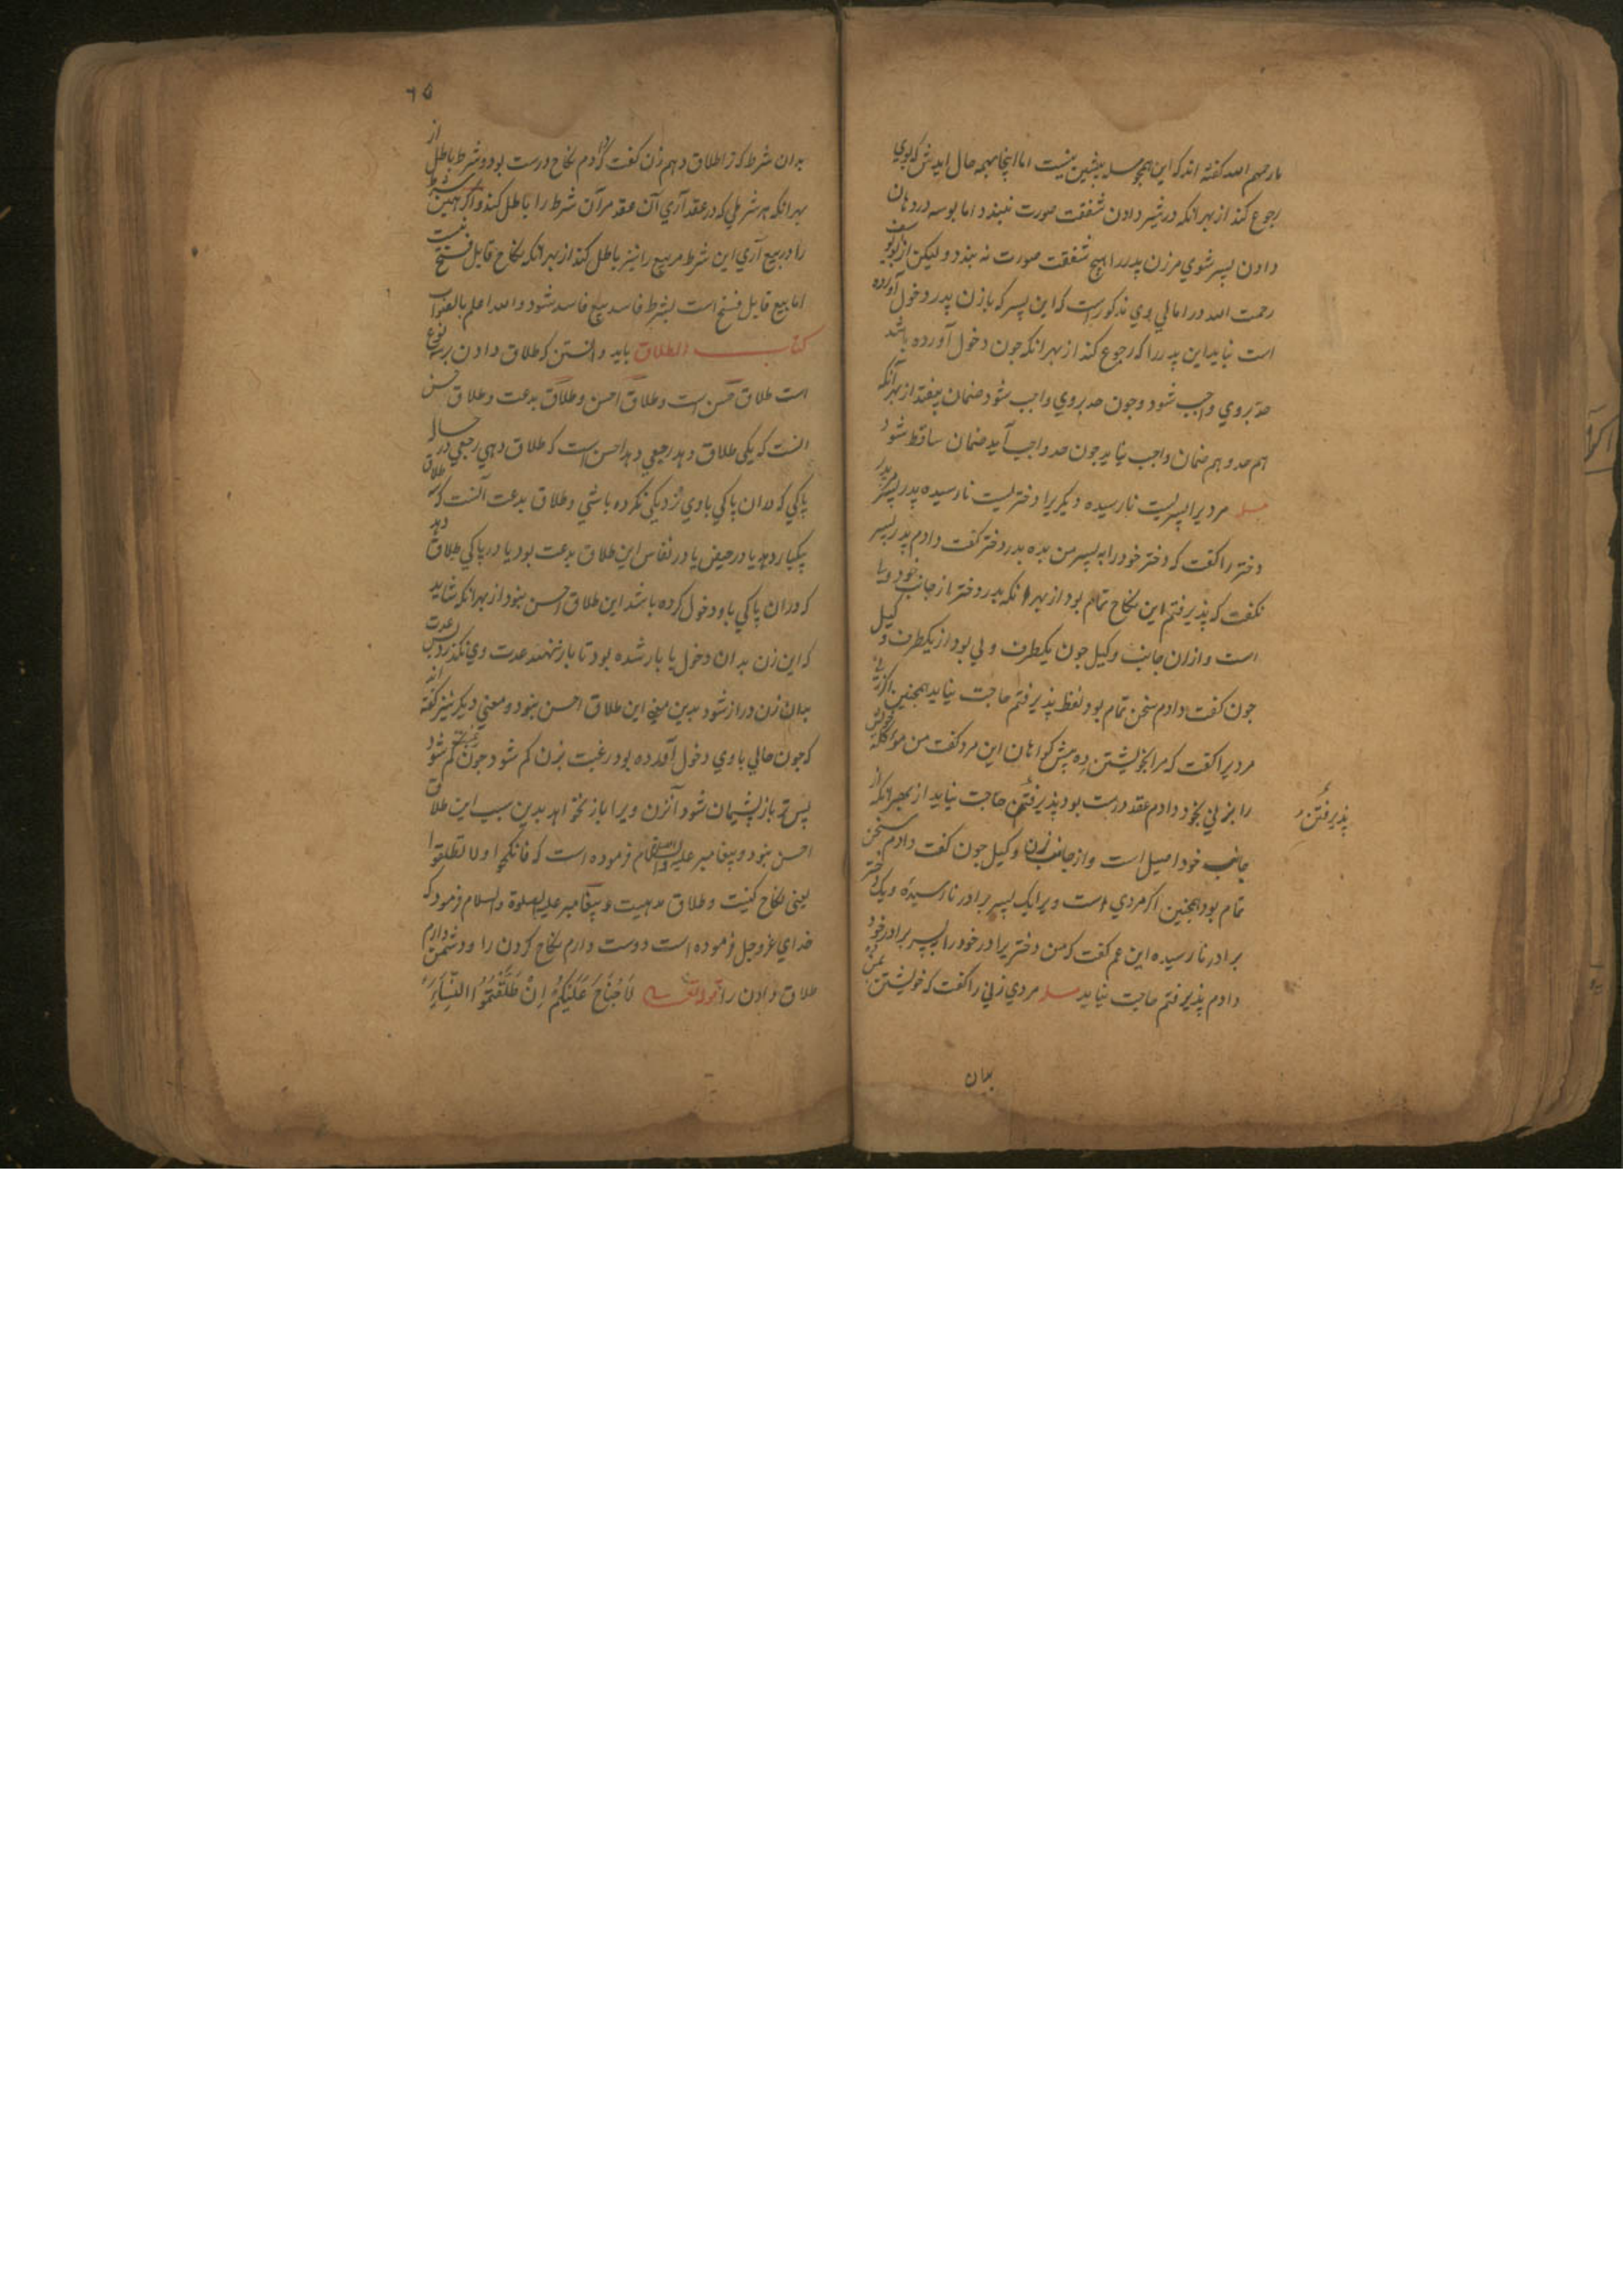 ما رحمهم الله گفته اند که این همچو مسله پیشین نیست اما اینجا بهمه حال
رجوع کند از بهر انکه در شیر دادن شفقت صورت نبندد اما بوسه در دهان
دادن پسر شوی مر زن پدر را هیچ شفقت صورت نه بندد و لیکن از بو یوسف
رحمت الله در امالی وی مذکور است که این پسر که با زن پدر دخول آورده
است نباید این پدر را که رجوع کند از بهر انکه چون دخول آورده باشد
حد بروی واجب شود و چون حد بروی واجب شود ضمان بیفتد از بهر آنکه
هم حد و هم ضمان واجب نیاید چون حد واجب آید ضمان ساقط شود
مسله مردیرا پسریست نارسیده دیگریرا دختریست نارسیده پدر پسر پدر
دختر را گفت که دختر خود را به پسر من بده پدر دختر گفت دادم پدر پسر
نگفت که پذیرفتم این نکاح تمام بود از بهر انکه پدر دختر از جانب خود ولی
است و ازان جانب وکیل چون یکطرف ولی بود از یکطرف وکیل
چون گفت دادم سخن تمام بود لفظ پذیرفتم حاجت نیاید همچنین اگر زنی
مردیرا گفت که مرا بخویشتن ده پیش گواهان این مرد گفت من موکله خویش
را بزنی بخود دادم عقد درست بود پذیرفتن حاجت نیاید از بهر انکه از
پذیرفتن
جانب خود اصیل است و از جانب زن وکیل چون گفت دادم سخن
تمام بود همچنین اگر مردی است ویرا یک پسر برادر نارسیده و یک دختر
برادر نارسیده این عم گفت که من دختر برادر خود را به پسر برادر خود
دادم پذیرفتم حاجت نیاید مسله مردی زنی را گفت که خویشتن بمن ده
بدان
٦٥
بدان شرط که ترا طلاق دهم زن گفت که دادم نکاح درست بود و شرط باطل از
بهر انکه هر شرطی که در عقد آری آن عقد مر آن شرط را باطل کند و اگر همین شرط
را در بیع آری این شرط مر بیع را نیز باطل کند از بهر انکه نکاح قابل فسخ نیست
اما بیع قابل فسخ است بشرط فاسد بیع فاسد شود والله اعلم بالصواب
کتاب الطلاق باید دانستن که طلاق دادن بر سه نوع
است طلاق حسن است و طلاق احسن و طلاق بدعت و طلاق حسن
انست که یکی طلاق دهد رجعی دهد احسن است که طلاق دهی رجعی در حاله
پاکی که دران پاکی باوی نزدیکی نکرده باشی و طلاق بدعت آنست که سه طلاق
بیکبار دهد یا در حیض یا در نفاس این طلاق بدعت بود یا در پاکی طلاق دهد
که دران پاکی با و دخول کرده باشد این طلاق احسن نبود از بهر انکه شاید
که این زن بدان دخول با بار شده بود تا بار ننهد عدت وی نگذرد پس عدت
بدان زن دراز شود بدین معنی این طلاق احسن نبود و معنی دیگر نیز گفته اند
که چون حالی باوی دخول آورده بود رغبت بزن کم شود چون رغبت کم شود
پس تر باز پشیمان شود آنزن ویرا باز نخواهد بدین سبب این طلاق
احسن نبود و پیغامبر علیه الصلوة والسلام فرموده است که فانکحوا ولا تطلقوا
یعنی نکاح کنیت و طلاق مدهیت و پیغامبر علیه الصلوة والسلام فرمود که
خدای عزوجل فرموده است دوست دارم نکاح کردن را و دشمن دارم
طلاق دادن را قوله تعالی لَا جُنَاحَ عَلَیْکُمْ اِنْ طَلَّقْتُمُوا النِّسَآءَ